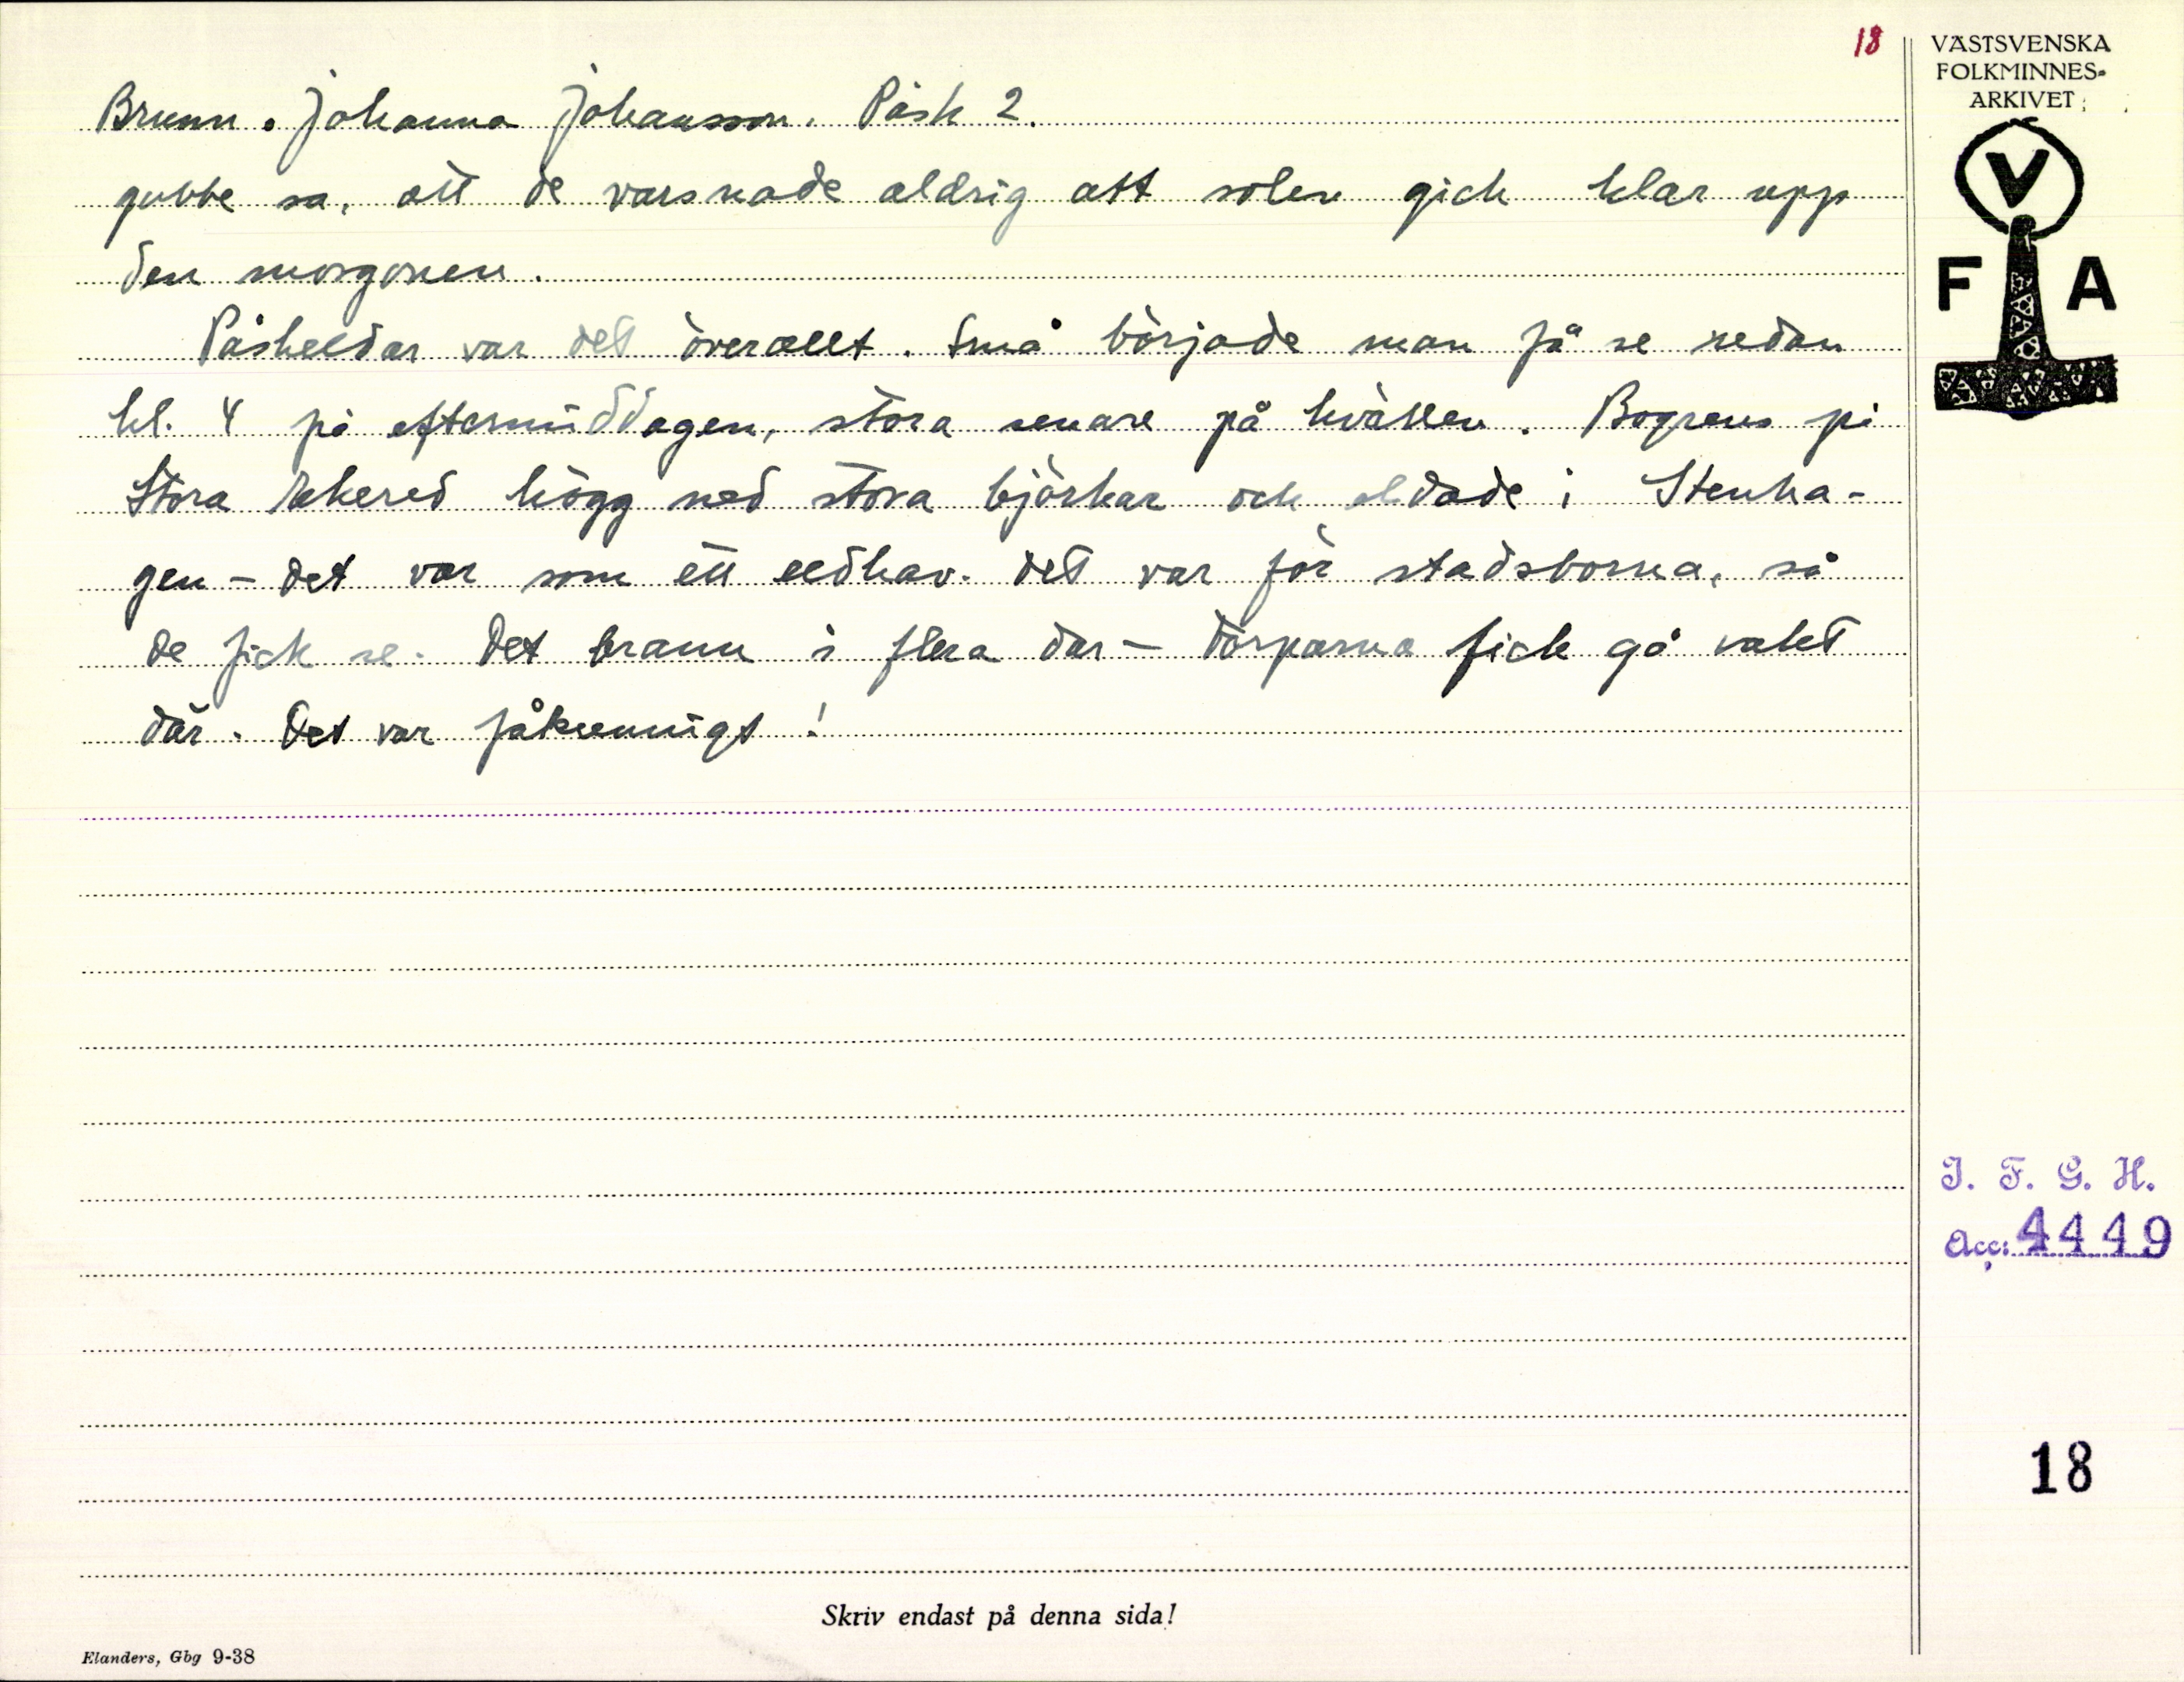 18
VÄSTSVENSKA
FOLKMINNES-
ARKIVET
Brunn. Johanna Johansson. Påsk 2.
gubbe sa, att de varsnade aldrig att solen gick klar upp
den morgonen.
Påskeldar var det överallt. Små började man få se redan
kl. 4 på eftermiddagen, stora senare på kvällen. Bogrens på
Stora Rekered högg ned stora björkar och eldade i Stenha-
gen - det var som ett eldhav. Det var för stadsborna, så
de fick se. Det brann i flera dar - torparna fick gå vakt
där. Det var fåkunnigt!
V
F A
I. F. G. H.
Acc: 4449
18
Skriv endast på denna sida!
Elanders, Gbg 9-38